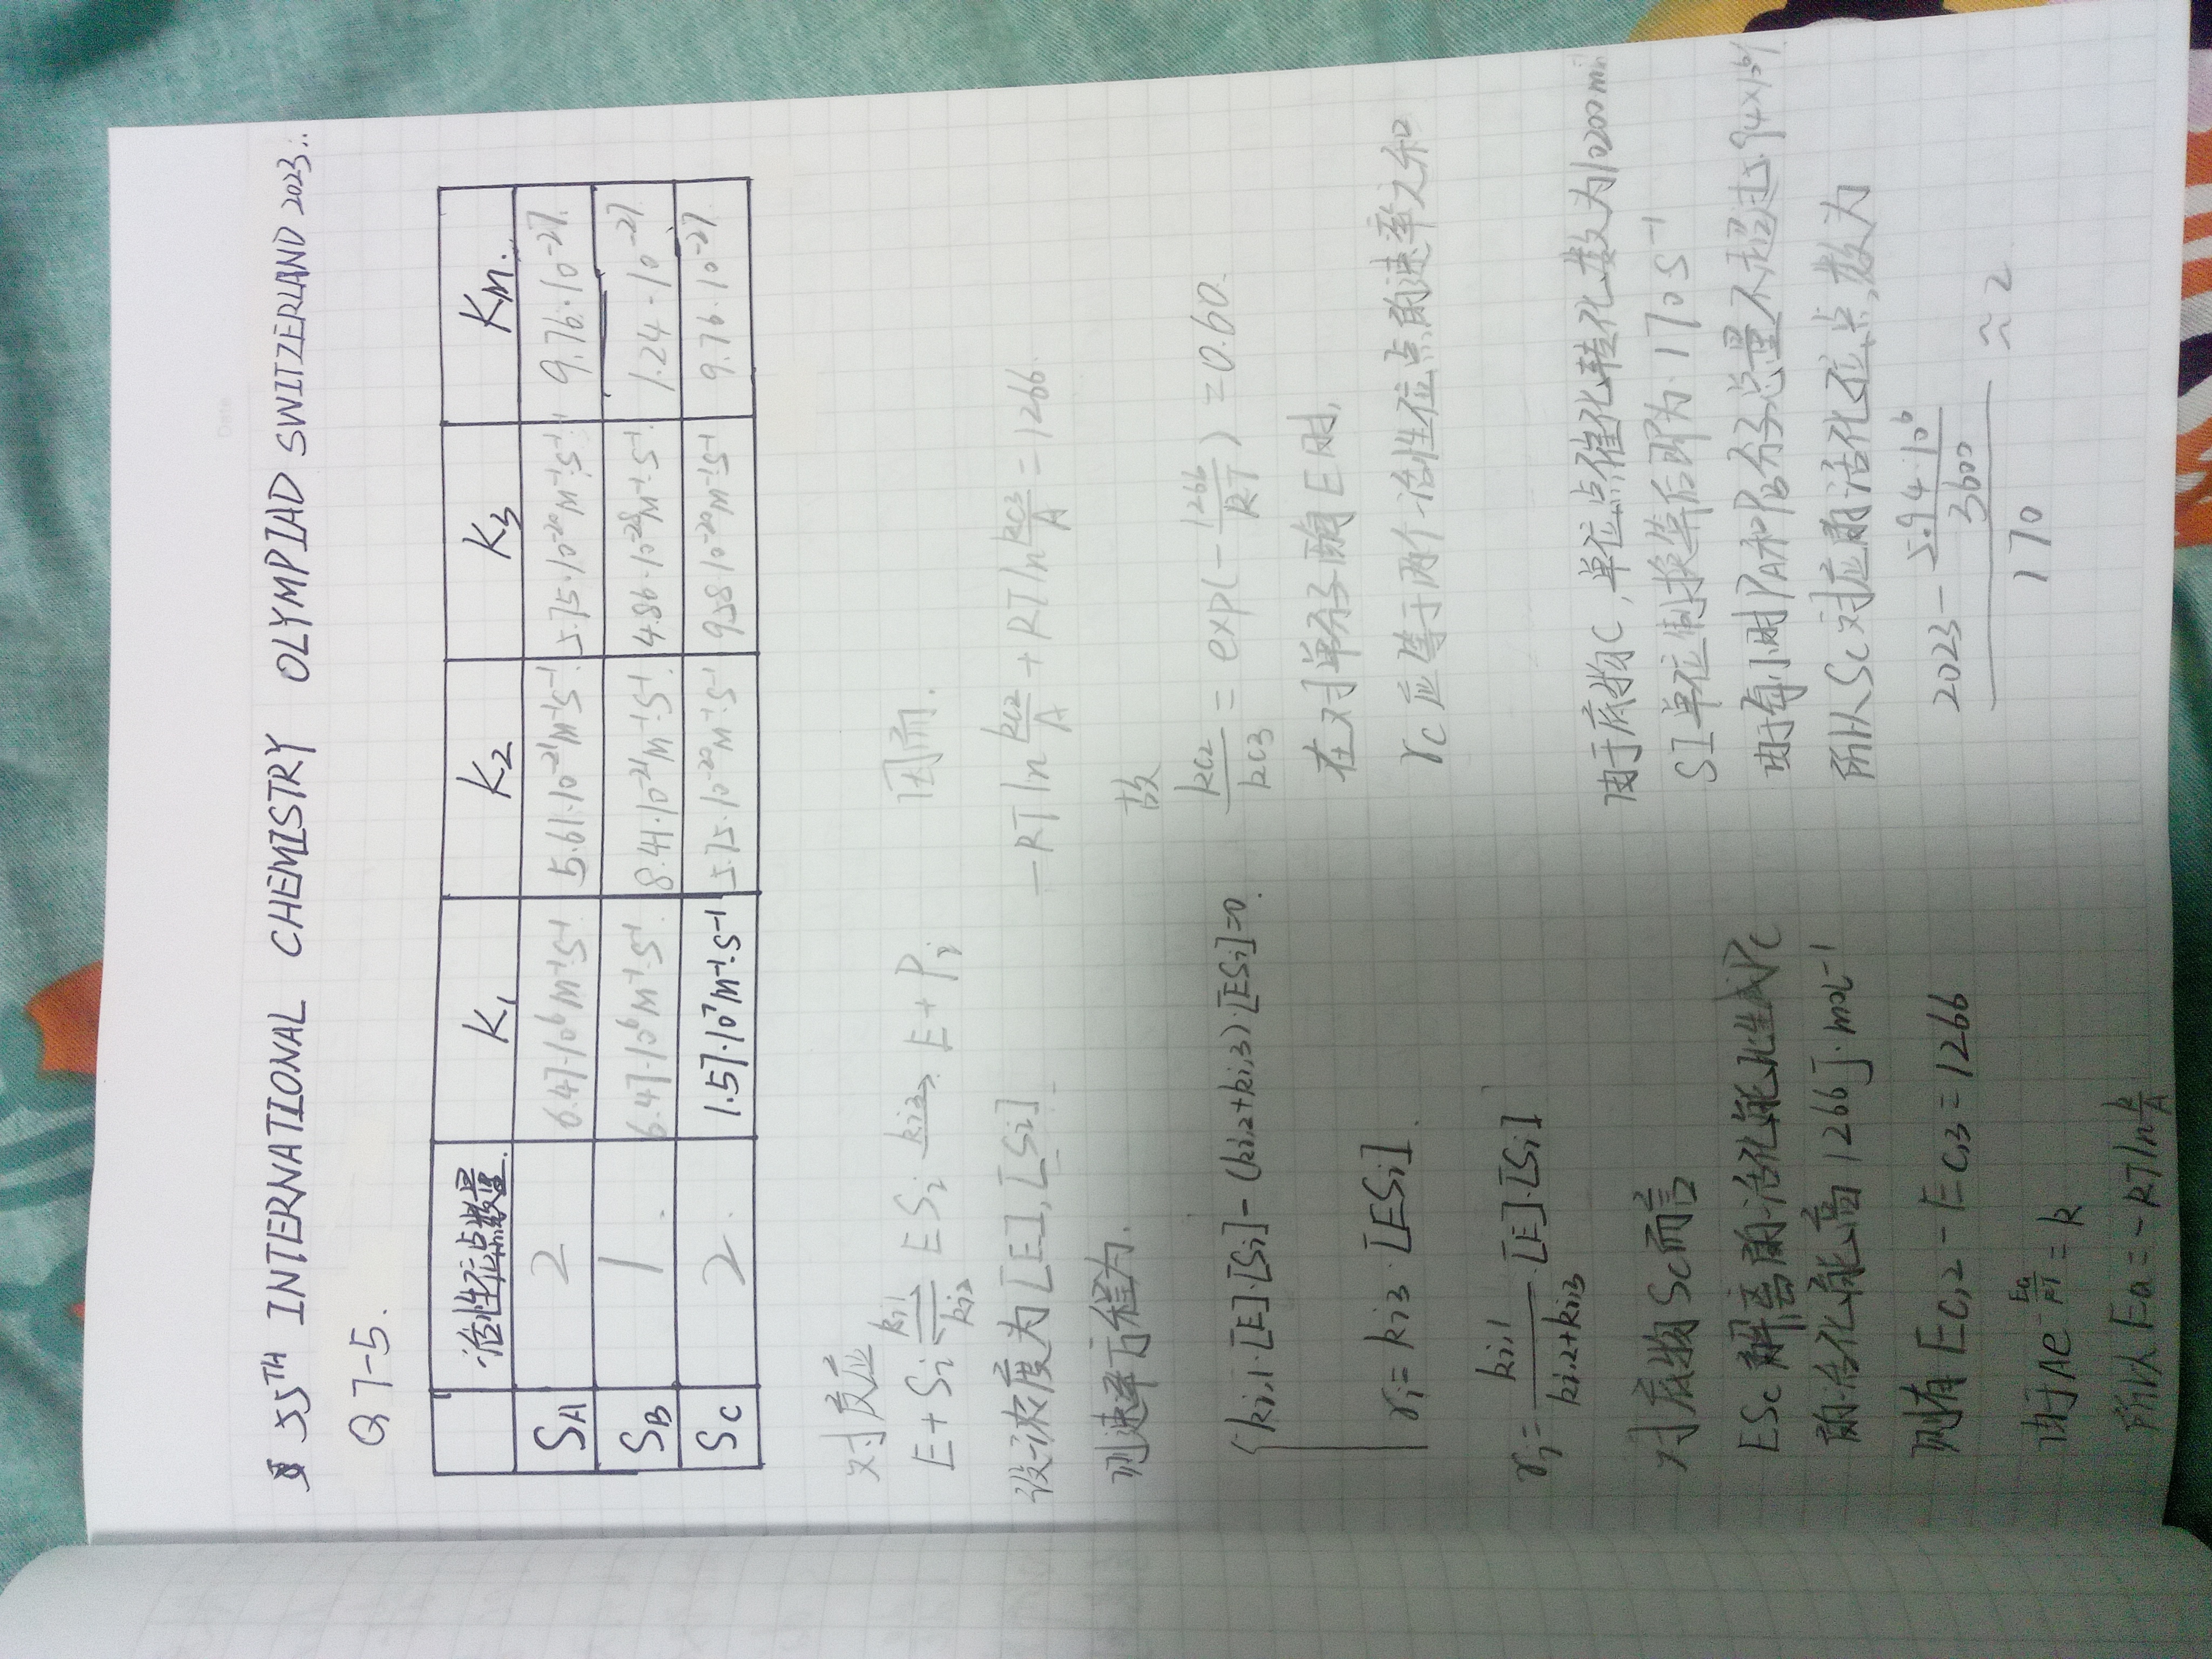 55TH INTERNATIONAL CHEMISTRY OLYMPIAD SWITZERLAND 2023..
Q7-5.
活性位点数量 K1 K2 K3 Km.
SA 2 6.47·10^6 M^-1·S^-1 5.61·10^-21 M^-1·S^-1 5.75·10^-20 M^-1·S^-1 9.76·10^-27
SB 1 6.47·10^6 M^-1·S^-1 8.41·10^-21 M^-1·S^-1 4.86·10^-28 M^-1·S^-1 1.24·10^-27
SC 2 1.57·10^7 M^-1·S^-1 5.75·10^-20 M^-1·S^-1 9.58·10^-20 M^-1·S^-1 9.76·10^-27
对反应
E+Si ⇌ ESi → E+Pi
设浓度为[E],[Si]
则速率方程为.
{ki,1·[E]·[Si]-(ki,2+ki,3)·[ESi]=0.
ri=ki3·[ESi].
ri= ki,1/(ki,2+ki,3) ·[E]·[Si]
对底物Sc而言
ESc解离的活化能比生成Pc
的活化能高1266J·mol^-1
则有EC,2-EC,3=1266
由于Ae^-Ea/RT=k
所以Ea=-RTln k/A
因而.
-RTln kC2/A + RTln kC3/A =1266.
故
kC2/kC3 = exp(-1266/RT)=0.60.
在对单分子酶E时,
rc应等于两个活性位点的速率之和
由于底物C,单位点催化转化数为10200min
SI单位制换算后即为170S^-1
由于每小时PA和PB分子总量不超过5.94×10^6个
所以Sc对应的活化位点数为
(2023-5.94·10^6/3600)/170 ≈2